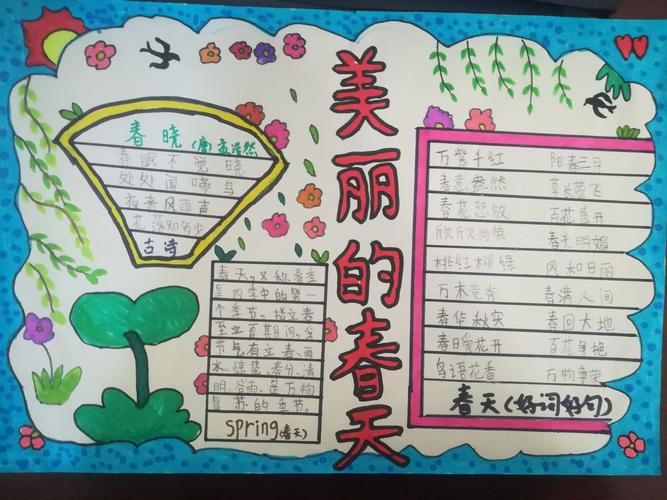 美丽的春天
春晓 (唐) 孟浩然
春眠不觉晓
处处闻啼鸟
夜来风雨声
花落知多少
古诗
春天,又称春季
是四季中的第一
个季节,指立春
至立夏期间,含
节气有立春、雨
水、惊蛰、春分、清
明、谷雨,是万物
复苏的季节。
spring(春天)
万紫千红 阳春三月
春意盎然 草长莺飞
春花怒放 百花盛开
欣欣向荣 春光明媚
桃红柳绿 风和日丽
万木竞秀 春满人间
春华秋实 春回大地
春暖花开 百花争艳
鸟语花香 万物争荣
春天(好词好句)